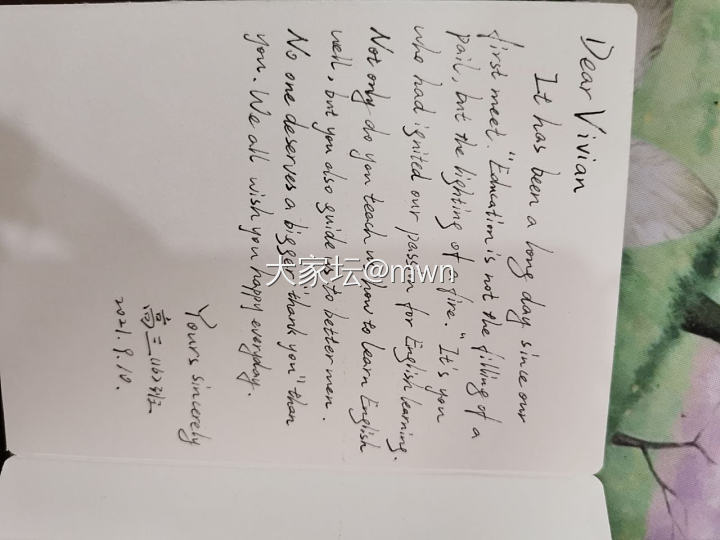 Dear Vivian
It has been a long day since our
first meet. "Education is not the filling of a
pail, but the lighting of a fire." It's you
who had ignited our passion for English learning.
Not only do you teach us how to learn English
well, but you also guide us to better men.
No one deserves a bigger "thank you" than
you. We all wish you happy everyday.
Yours sincerely
高三1162班
2021.9.10.
大家坛@mwn